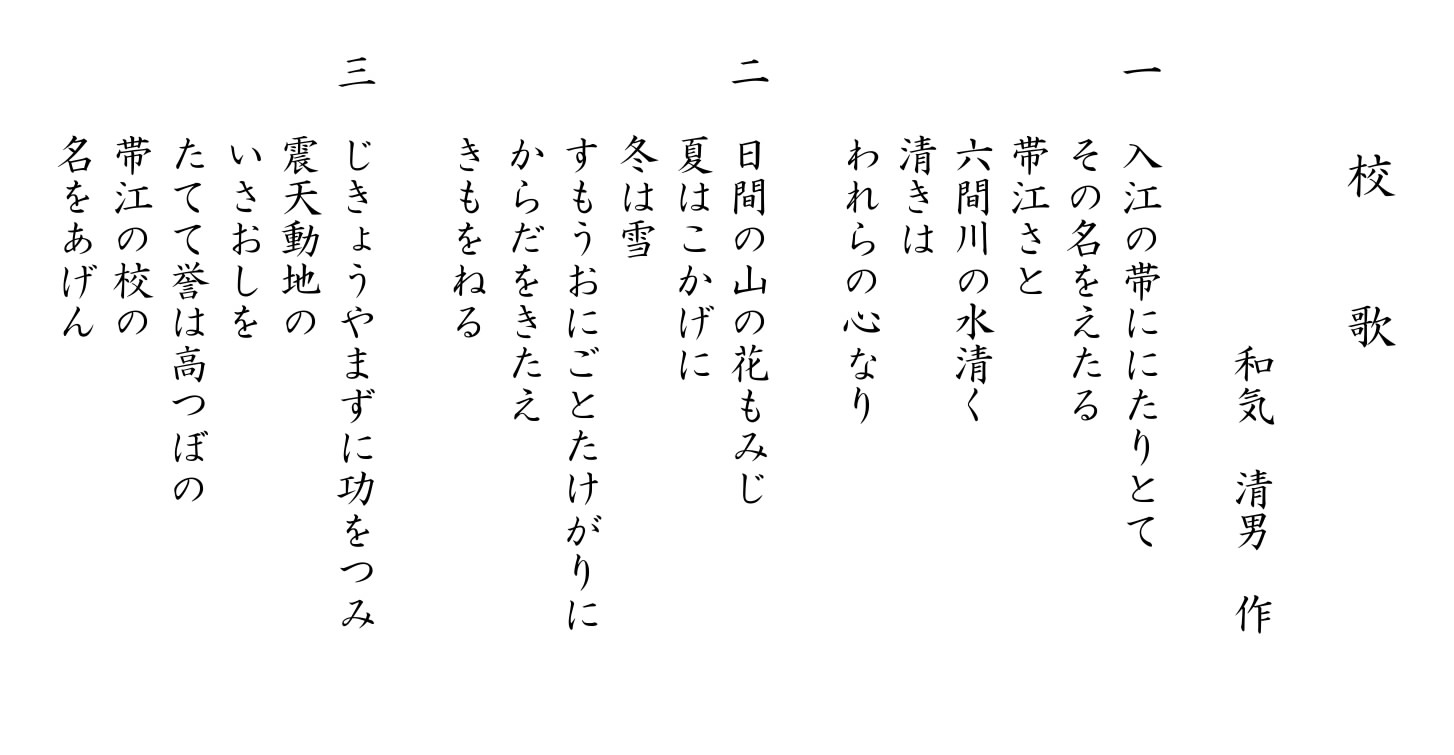 校　歌
和気　清男　作
一　入江の帯ににたりとて
その名をえたる
帯江さと
六間川の水清く
清きは
われらの心なり
二　日間の山の花もみじ
夏はこかげに
冬は雪
すもうおにごとたけがりに
からだをきたえ
きもをねる
三　じきょうやまずに功をつみ
震天動地の
いさおしを
たてて誉は高つぼの
帯江の校の
名をあげん